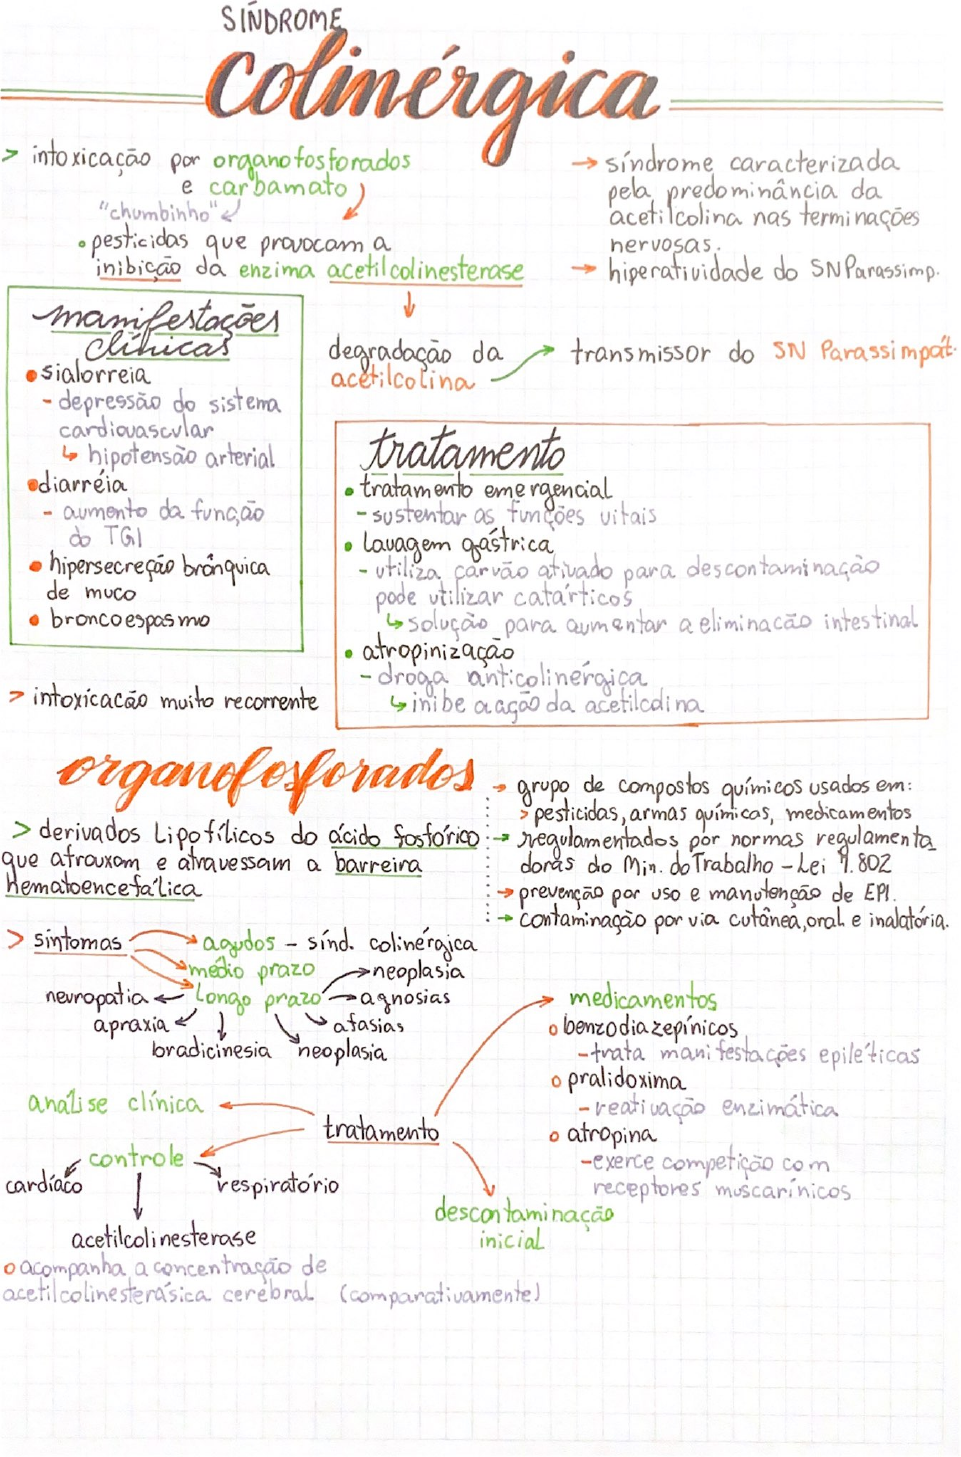 SÍNDROME
colinérgica
> intoxicação por organofosforados
e carbamato
"chumbinho"
• pesticidas que provocam a
inibição da enzima acetilcolinesterase
→ síndrome caracterizada
pela predominância da
acetilcolina nas terminações
nervosas.
→ hiperatividade do SNParassimp.
degradação da
acetilcolina
transmissor do SN Parassimpát.
manifestações
clínicas
• sialorreia
- depressão do sistema
cardiovascular
↳ hipotensão arterial
• diarréia
- aumento da função
do TGI
• hipersecreção brônquica
de muco
• broncoespasmo
> intoxicacão muito recorrente
tratamento
• tratamento emergencial
- sustentar as funções vitais
• lavagem gástrica
- utiliza carvão ativado para descontaminação
pode utilizar catárticos
↳ solução para aumentar a eliminacão intestinal
• atropinização
- droga anticolinérgica
↳ inibe a ação da acetilcolina
organofosforados
> derivados lipofílicos do ácido fosfórico
que afrouxam e atravessam a barreira
hematoencefálica
→ grupo de compostos químicos usados em:
> pesticidas, armas químicas, medicamentos
→ regulamentados por normas regulamenta_
doras do Min. do Trabalho - Lei 7.802
→ prevenção por uso e manutenção de EPI.
→ contaminação por via cutânea, oral e inalatória.
> sintomas
agudos - sínd. colinérgica
médio prazo
longo prazo
neoplasia
agnosias
afasias
neoplasia
bradicinesia
apraxia
neuropatia
tratamento
medicamentos
o benzodiazepínicos
- trata manifestações epiléticas
o pralidoxima
- reativação enzimática
o atropina
- exerce competição com
receptores muscarínicos
descontaminação
inicial
análise clínica
controle
cardíaco
respiratório
acetilcolinesterase
o acompanha a concentração de
acetilcolinesterásica cerebral (comparativamente)